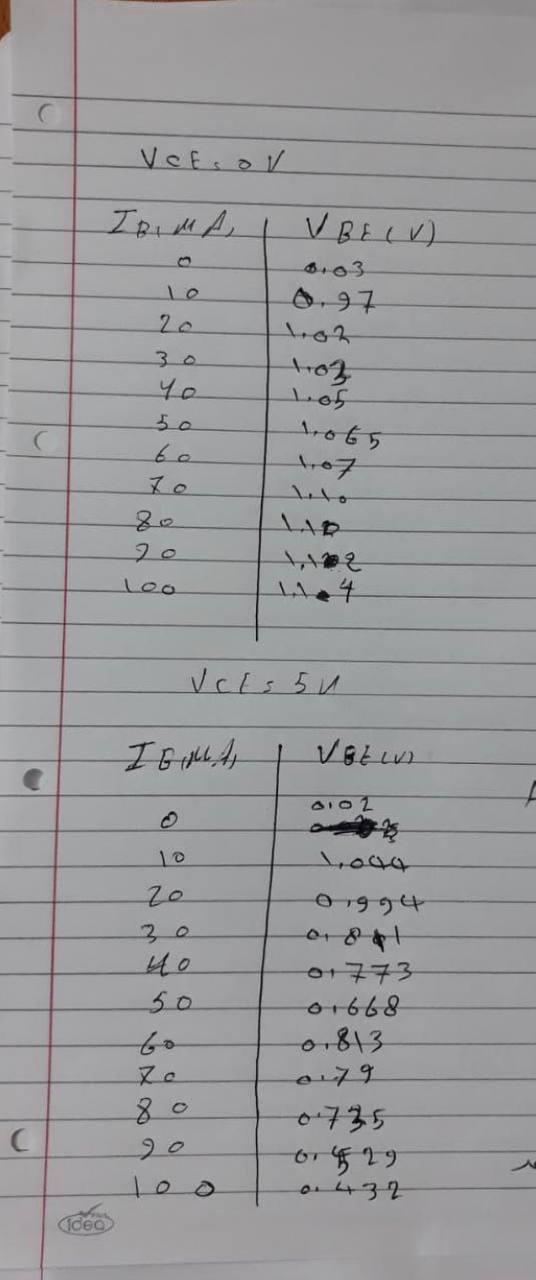 VCE = 0V
IB(μA) VBE(V)
0 0.03
10 0.97
20 1.02
30 1.03
40 1.05
50 1.065
60 1.07
70 1.10
80 1.10
90
100
VCE = 5V
IB(μA) VBE(V)
0 0.02
10 1.044
20 0.994
30
40 0.773
50 0.668
60 0.813
70 0.79
80 0.735
90 0.529
100 0.432
idea